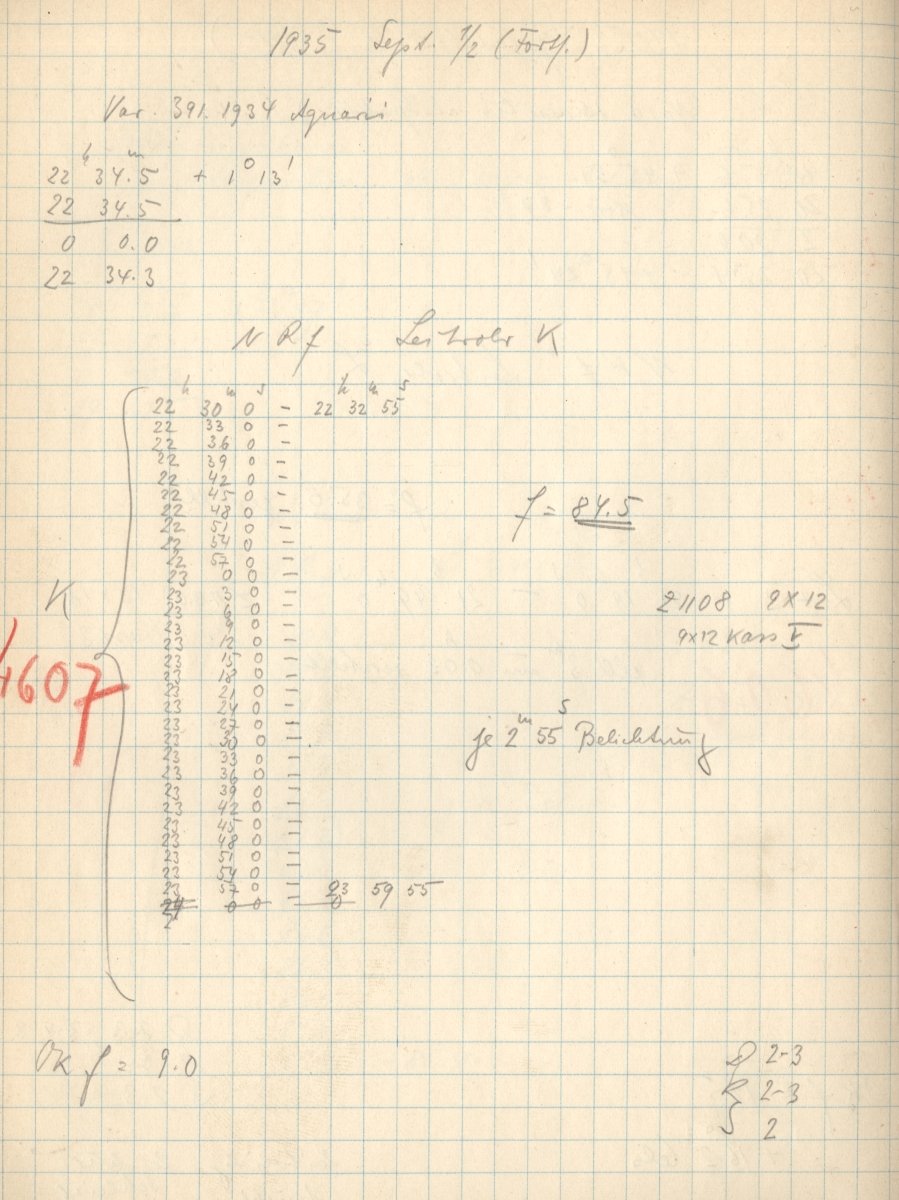 1935 Sept. 1/2 (Forts.)
Var. 391.1934 Aquarii
22h 34m.5 + 1° 13'
22 34.5
0 0.0
22 34.3
N R f Leitrohr K
22h 30m 0s - 22h 32m 55s
22 33 0 -
22 36 0 -
22 39 0 -
22 42 0 -
22 45 0 -
22 48 0 -
22 51 0 -
22 54 0 -
22 57 0 -
23 0 0 -
23 3 0 -
23 6 0 -
23 9 0 -
23 12 0 -
23 15 0 -
23 18 0 -
23 21 0 -
23 24 0 -
23 27 0 -
23 30 0 -
23 33 0 -
23 36 0 -
23 39 0 -
23 42 0 -
23 45 0 -
23 48 0 -
23 51 0 -
23 54 0 -
23 57 0 - 23 59 55
24 0 0 - 0
f = 84.5
K
4607
21108 9X12
9x12 Kass V
je 2m 55s Belichtung
Ok f = 9.0
D 2-3
R 2-3
S 2